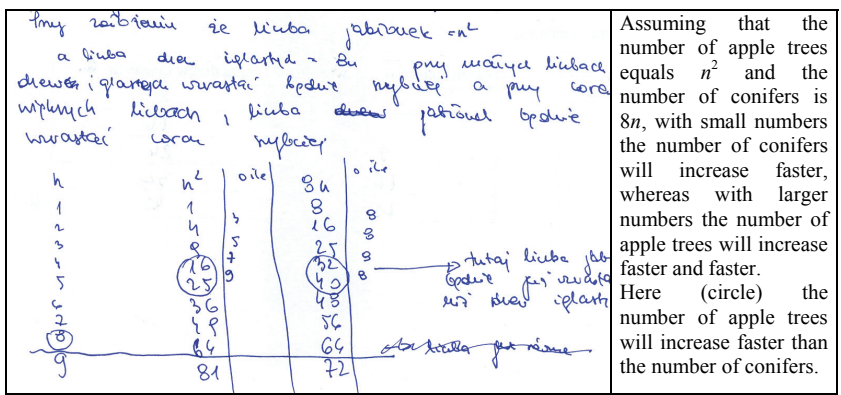 Przy założeniu że liczba jabłonek = n²
a liczba drzew iglastych = 8n przy małych liczbach
drzew iglastych wzrastać będzie szybciej a przy coraz
większych liczbach, liczba drzew jabłonek będzie
wzrastać coraz szybciej
n n² o ile 8n o ile
1 1 8
2 4 3 16 8
3 9 5 25 8
4 16 7 32 8 tutaj liczba jab
5 25 9 40 8 będzie już wzrasta
6 36 48 niż drzew iglast
7 49 56
8 64 64 liczba jest równa
9 81 72
Assuming that the
number of apple trees
equals n² and the
number of conifers is
8n, with small numbers
the number of conifers
will increase faster,
whereas with larger
numbers the number of
apple trees will increase
faster and faster.
Here (circle) the
number of apple trees
will increase faster than
the number of conifers.